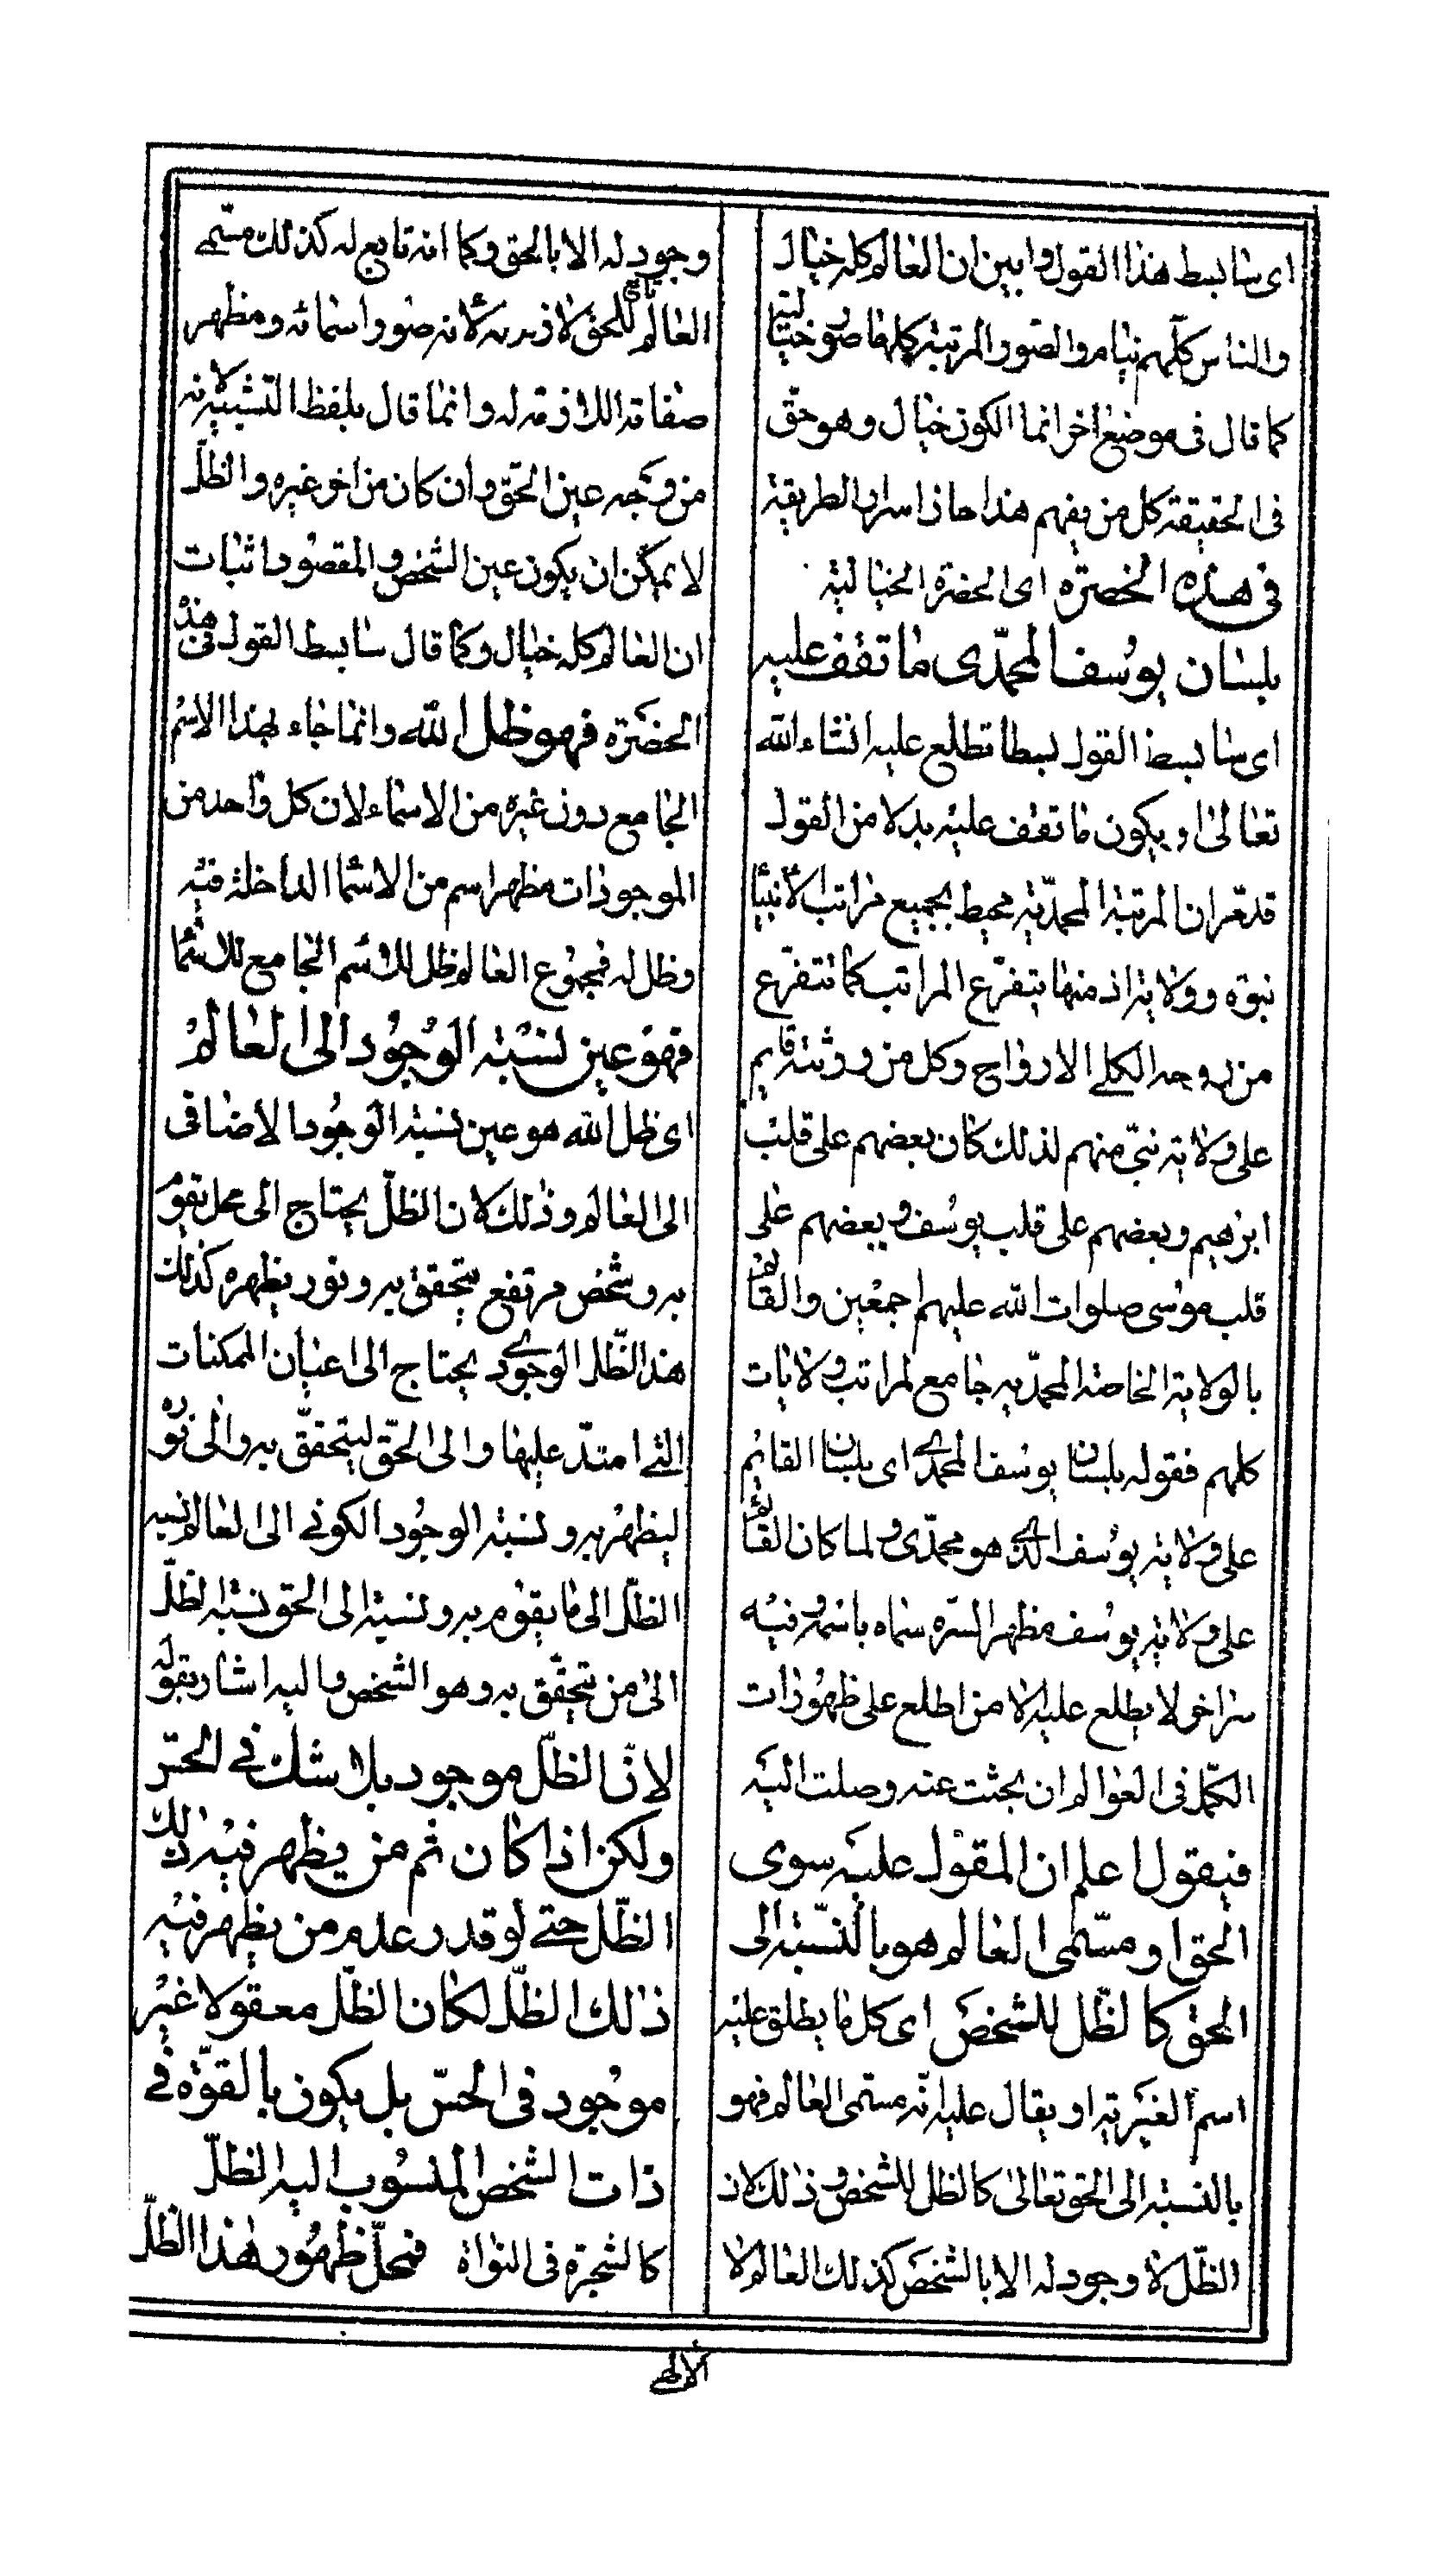 ای سابسط هذا القول وابین ان العالم کله خیال
والناس کلّهم نیام والصّور المرتبة کلها صور خیالیة
کما قال فی موضع اخر انما الکون خیال وهو حقّ
فی الحقیقة کل من یفهم هذا حاز اسرار الطریقة
فی هذه الحضرة ای الحضرة الخیالیة
بلسان یوسف المحمّدی ما تقف علیه
ای سابسط القول بسطا تطلع علیه انشاء الله
تعالیٰ او یکون ما تقف علیه بدلا من القول
قد تقرر ان المرتبة المحمدّیة محیط بجمیع مراتب الأنبیا
نبوّة وولایة اذ منها یتفرّع المراتب کما تتفرّع
من روحه الکلی الارواح وکل من ورثته قایم
علی ولایة نبیّ منهم لذلک کان بعضهم علی قلب
ابرٰهیم وبعضهم علی قلب یوسف وبعضهم علی
قلب موسی صلوات الله علیهم اجمعین والقائم
بالولایة الخاصّة المحمدّیة جامع لمراتب ولایات
کلهم فقوله بلسان یوسف المحمّدی ای بلسان القائم
علی ولایة یوسف الذی هو محمّدی ولما کان القائم
علی ولایة یوسف مظهرا لسرّه سماه باسمه وفیه
سرّ اخر لا یطلع علیه الا من اطلع علی ظهورات
الکمّل فی العوالم ان بحثت عنه وصلت الیه
فنقول اعلم ان المقول علیه سوی
الحق او مسمّی العالم هو بالنسّبة الی
الحق کالظّل للشخص ای کل ما یطلق علیه
اسم الغیریّة او یقال علیه انّه مسمّی العالم فهو
بالنسبة الی الحق تعالیٰ کالظل للشخص وذٰلک لان
الظّل لا وجود له الا بالشخص کذٰلک العالم لا
وجود له الا بالحق وکما انه تابع له کذلک مسمّی
العالم تابع للحق لازم له لأنه صور اسمائه ومظهر
صفاته اللازمة له وانما قال بلفظ التشبیه لانه
من وجه عین الحق وان کان من اخر غیره والظلّ
لا یمکن ان یکون عین الشخص والمقصود اثبات
ان العالم کله خیال وکما قال سابسط القول فی هذه
الحضرة فهو ظل الله وانما جاء بهذا الاسم
الجامع دون غیره من الاسماء لان کل واحد من
الموجودات مظهر اسم من الاسما الداخلة فیه
وظل له فمجموع العالم ظل للاسم الجامع للاسما
فهو عین نسبة الوجود الی العالم
ای ظل الله هو عین نسبة الوجود الاضافی
الی العالم وذٰلک لان الظلّ یحتاج الی محل یقوم
به وشخص مرتفع یتحقق به ونور یظهره کذٰلک
هذا الظّل الوجودی یحتاج الی اعیان الممکنات
التی امتدّ علیها والی الحقّ لیتحقّق به والی نوره
لیظهر به ونسبة الوجود الکونی الی العالم نسبة
الظلّ الی ما یقوم به ونسبة الی الحق نسبة الظلّ
الی من تحقّق به وهو الشخص والیه اشار بقوله
لانّ الظلّ موجود بلا شک فی الحسّ
ولکن اذا کان ثم من یظهر فیه ذٰلک
الظّل حتی لو قدر عدم من یظهر فیه
ذٰلک الظّل لکان الظّل معقولا غیر
موجود فی الحسّ بل یکون بالقوّة فی
ذات الشخص المنسوب الیه الظلّ
کالشجرة فی النواة فمحلّ ظهور هٰذا الظلّ
الالهی